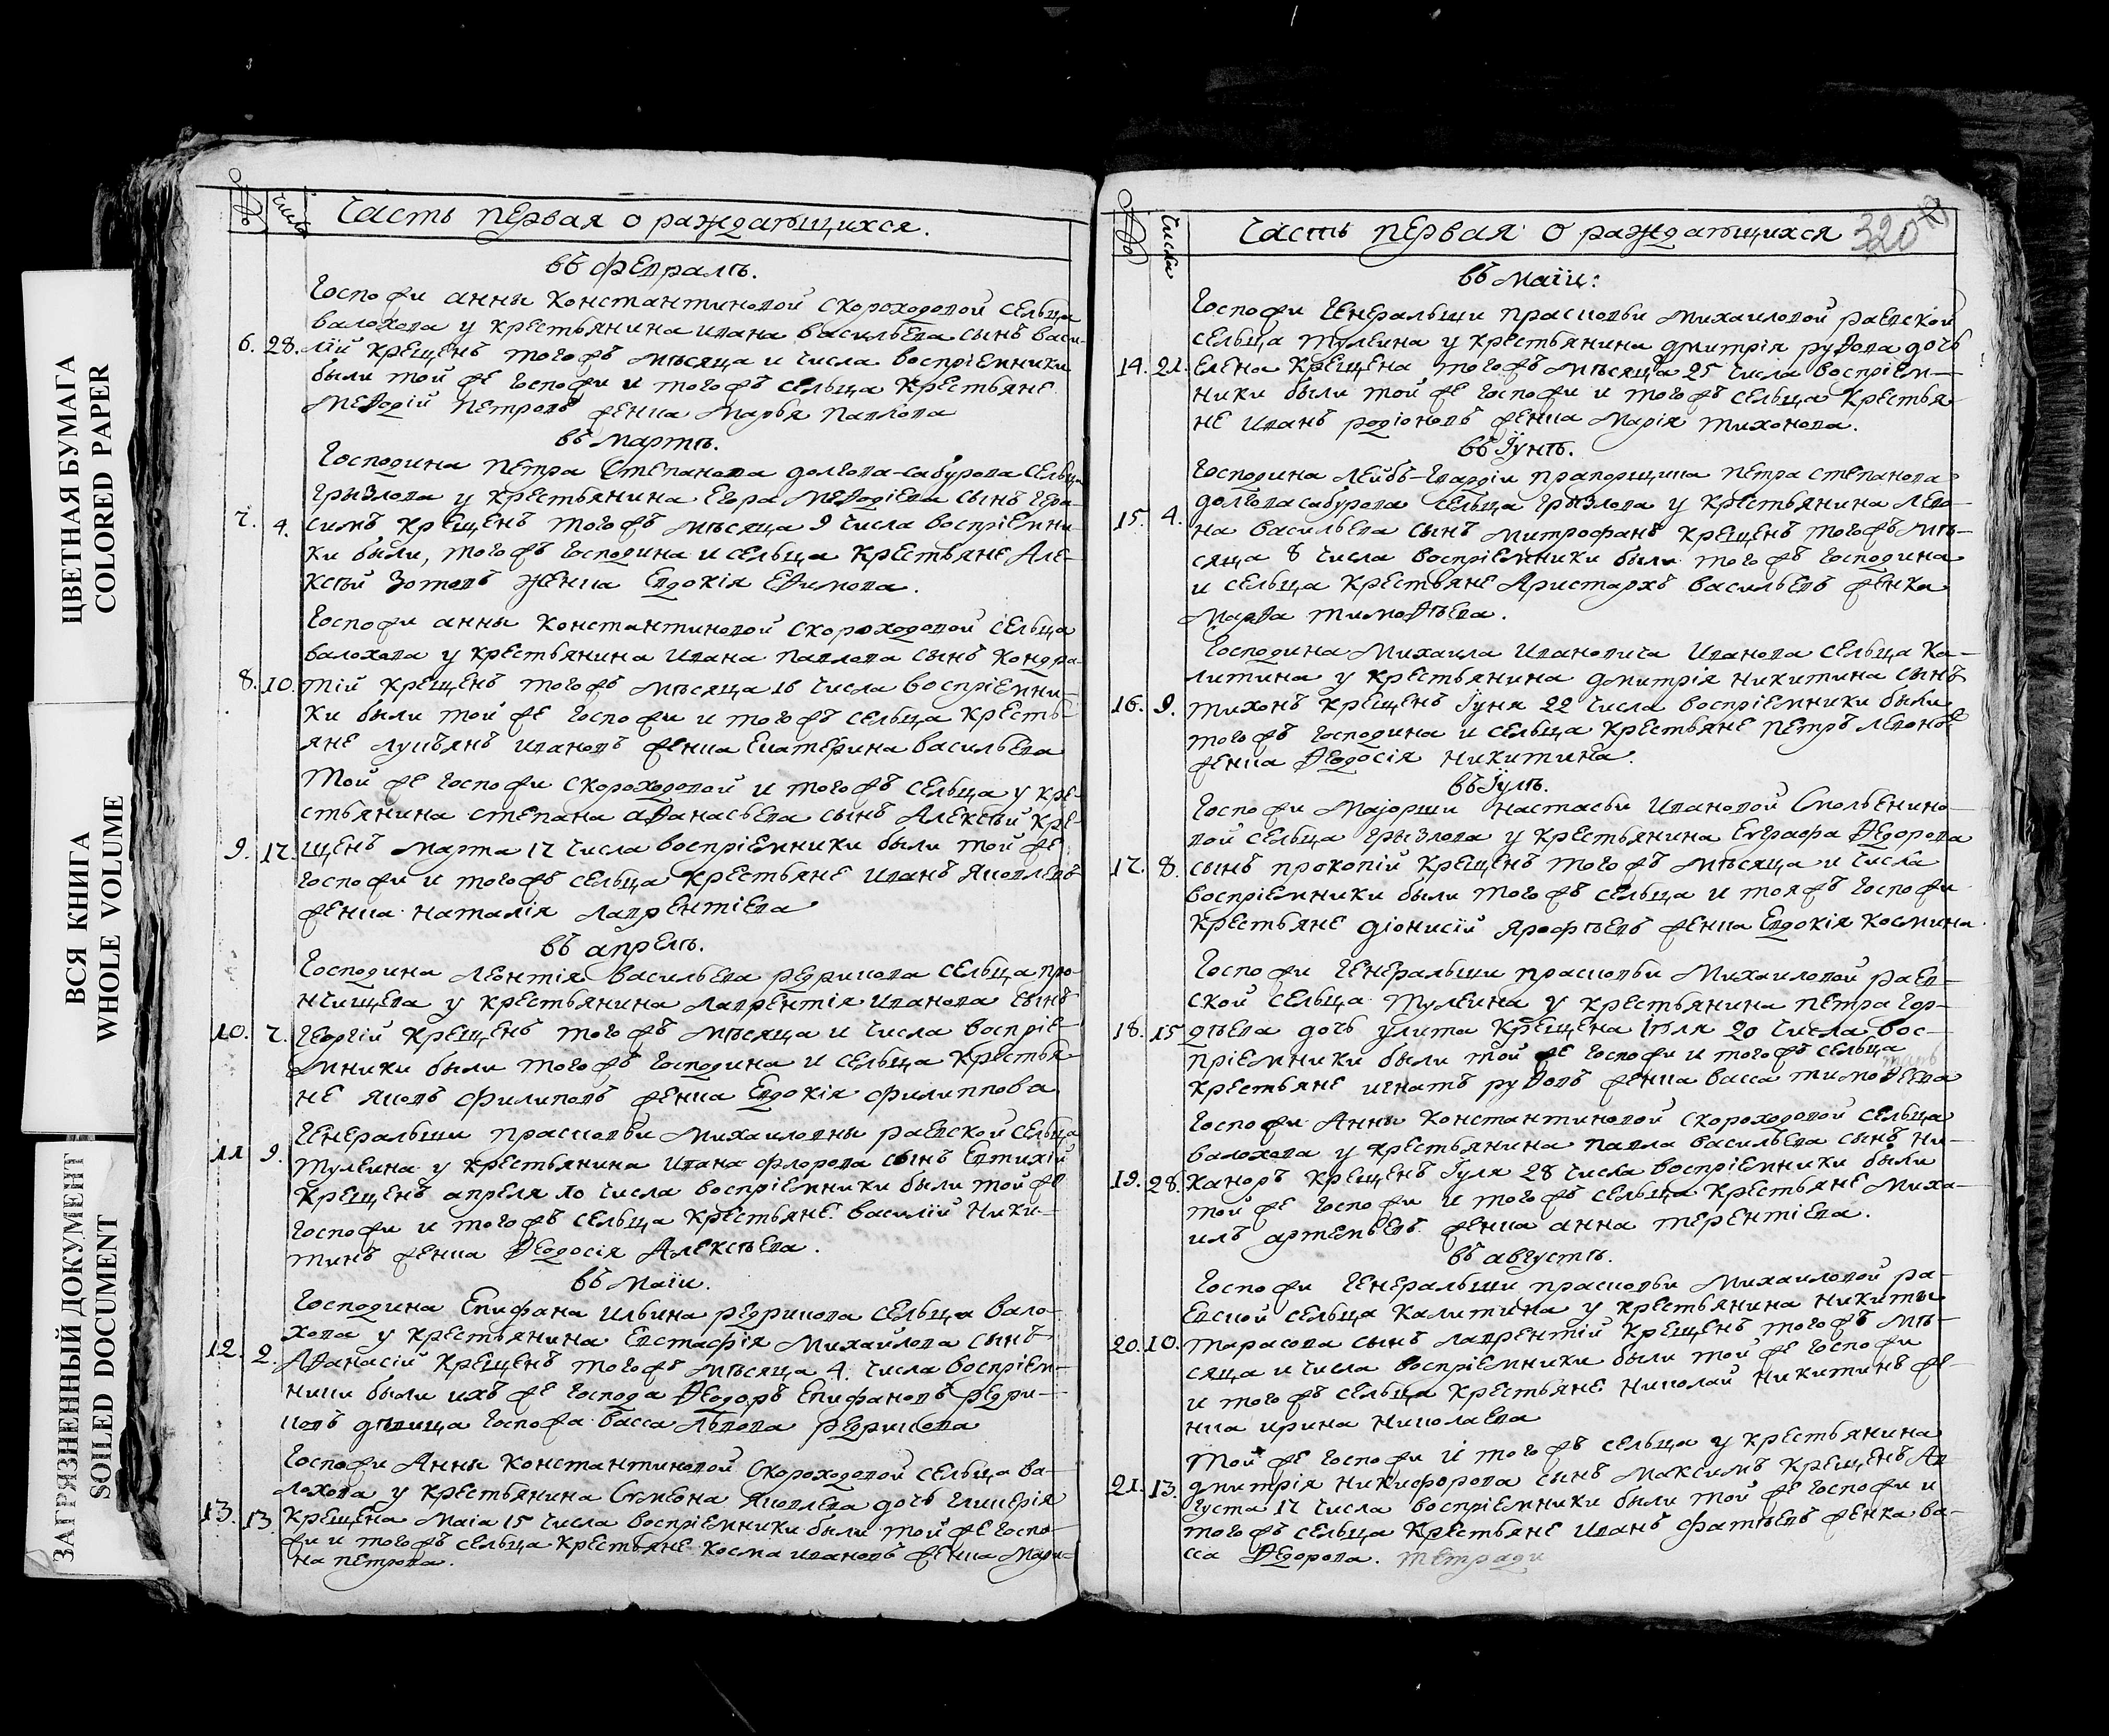 ЦВЕТНАЯ БУМАГА
COLORED PAPER
ВСЯ КНИГА
WHOLE VOLUME
ЗАГРЯЗНЕННЫЙ ДОКУМЕНТ
SOILED DOCUMENT
Числа Часть первая о раждающихся.
въ Февралѣ.
Госпожи анны Константиновой Скороходовой сельца
валохова у крестьянина ивана васильева сынъ васи-
6. 28. лій крещенъ тогожъ мѣсяца и числа воспріемники
были той же госпожи и тогожъ сельца крестьяне
меѳодій петровъ женка Марья павлова
въ Мартѣ.
Господина петра Степанова долгова-сабурова сельца
грызлова у крестьянина Егора меѳодіева сынъ гера-
7. 4. симъ крещенъ тогожъ мѣсяца 9 числа воспріемни-
ки были, тогожъ господина и сельца крестьяне Але-
ксѣй Зотовъ женка Евдокія Еѳимова.
Госпожи анны Константиновой Скороходовой сельца
валохова у крестьянина ивана павлова сынъ Кондра-
8. 10. тій крещенъ тогожъ мѣсяца 16 числа воспріемни-
ки были той же госпожи и тогожъ сельца кресть-
яне лукьянъ ивановъ женка Екатерина васильева
Той же госпожи Скороходовой и тогожъ сельца у кре-
стьянина степана аѳанасьева сынъ Алексѣй кре-
9. 17. щенъ марта 17 числа воспріемники были той же
госпожи и тогожъ сельца крестьяне иванъ яковлевъ
женка наталія лаврентіева
въ апрелѣ.
Господина леонтія васильева редрикова сельца про-
нчищева у крестьянина лаврентія иванова сынъ
10. 7. георгій крещенъ тогожъ мѣсяца и числа воспріе-
мники были тогожъ господина и сельца крестья-
не яковъ филиповъ женка Евдокія филиппова
Генеральши прасковьи михаиловны раевской сельца
11 9. тулеина у крестьянина ивана флорова сынъ Евтихій
крещенъ апреля 10 числа воспріемники были той же
госпожи и тогожъ сельца крестьяне василій ники-
тинъ женка ѳеодосія Алексѣева.
въ маїи.
Господина Епифана ильина редрикова сельца вало-
хова у крестьянина Евстафїя михайлова сынъ
12. 2. Аѳанасій крещенъ тогожъ мѣсяца 4. числа воспріем-
ники были ихъ же господа ѳеодоръ Епифановъ редри-
ковъ дѣвица госпожа васса львова редрикова
Госпожи Анны Константиновой Скороходовой сельца ва-
лохова у крестьянина Симеона яковлева дочь гликерія
13. 13. крещена маія 15 числа воспріемники были той же госпо-
жи и тогожъ сельца крестьяне косма ивановъ женка мари-
на петрова.
Числа Часть первая о раждающихся 320
въ маїи:
Госпожи генеральши прасковьи михаиловой раевской
сельца тулеина у крестьянина дмитрія руѳова дочь
14. 21. елена крещена тогожъ мѣсяца 25 числа воспріем-
ники были той же госпожи и тогожъ сельца крестья-
не иванъ родіоновъ женка марія тихонова.
въ Їунѣ.
Господина лейбъ-гвардіи прапорщика петра степанова
долговасабурова сельца грызлова у крестьянина лево-
15. 4. на васильева сынъ митрофанъ крещенъ тогожъ мѣ-
сяца 8 числа воспріемники были тогожъ господина
и сельца крестьяне Аристархъ васильевъ женка
марѳа тимоѳѣева.
Господина михаила ивановича иванова сельца ка-
литина у крестьянина дмитрія никитина сынъ
16. 9. тихонъ крещенъ Їуня 22 числа воспріемники были
тогожъ господина и сельца крестьяне петръ левоновъ
женка ѳеодосія никитина.
въ Їулѣ.
Госпожи маіорши настасьи ивановой
сельца грызлова у крестьянина Евграфа ѳедорова
17. 8. сынъ прокопій крещенъ тогожъ мѣсяца и числа
воспріемники были тогожъ сельца и тояжъ госпожи
крестьяне діонисїй ярофѣевъ женка Евдокія космина.
Госпожи генеральши прасковьи михаиловой раев-
ской сельца тулеина у крестьянина петра гор-
18. 15 дѣева дочь улита крещена Іюля 20 числа вос-
пріемники были той же госпожи и тогожъ сельца
крестьяне игнатъ руѳовъ женка васса тимоѳеева
Госпожи Анны Константиновой Скороходовой сельца
валохова у крестьянина павла васильева сынъ ни-
19. 28. каноръ крещенъ Їуля 28 числа воспріемники были
той же госпожи и тогожъ сельца крестьяне миха-
илъ артемьевъ женка анна терентіева.
въ августѣ.
Госпожи генеральши прасковьи михаиловой ра-
евской сельца калитина у крестьянина никиты
20. 10. тарасова сынъ лаврентій крещенъ тогожъ мѣ-
сяца и числа воспріемники были той же госпожи
и тогожъ сельца крестьяне николай никитинъ же-
нка ирина николаева
Той же госпожи и тогожъ сельца у крестьянина
21. 13. дмитрія никифорова сынъ максимъ крещенъ Ав-
густа 17 числа воспріемники были той же госпожи и
тогожъ сельца крестьяне иванъ фатѣевъ женка ва-
сса ѳедорова. тетради